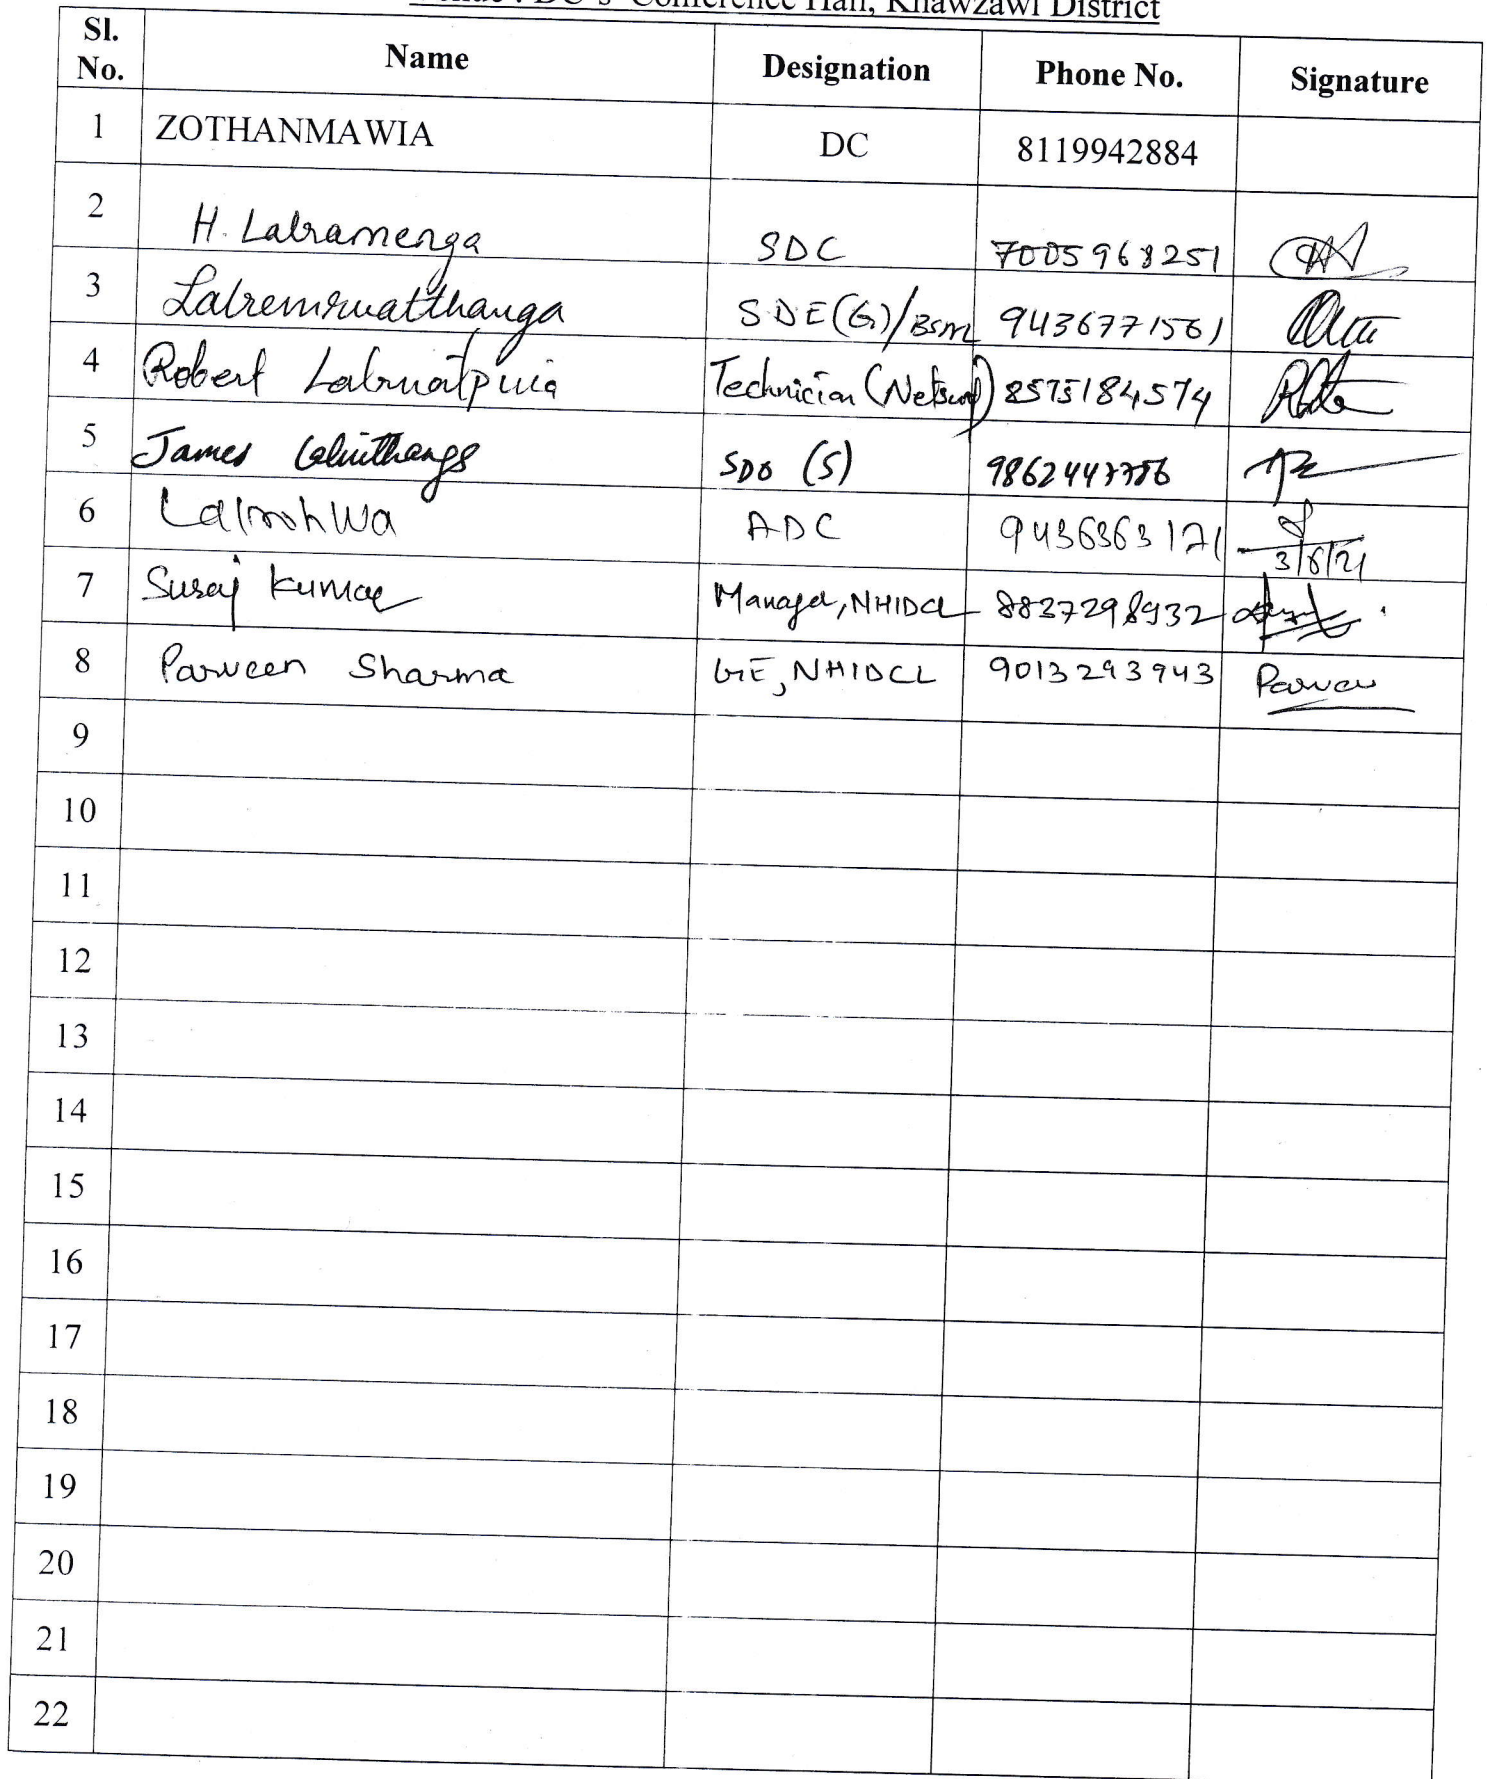 Venue : DC's Conference Hall, Khawzawl District
Sl. No. Name Designation Phone No. Signature
1 ZOTHANMAWIA DC 8119942884
2 H. Lalramenga SDC 7005968251
3 Lalremruatthanga SDE(G)/BSNL 9436771561
4 Robert Lalruatpuia Technician (Netsurf) 8575184574
5 James SDO (S)
6 ADC 9436363171 3/6/21
7 Suraj Kumar Manager, NHIDCL 8837298932
8 Parveen Sharma GE, NHIDCL 9013293943 Parveen
9
10
11
12
13
14
15
16
17
18
19
20
21
22